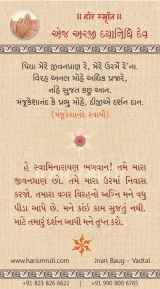 ॥ હરિ સ્મૃતિ ॥
એજ અરજી દયાનિધિ દેવ
પિયા મેરે જીવનપ્રાણ રે, મેરે ઉરમેં રે'ના.
વિરહ અનલ મોહે અધિક પ્રજારે,
નહિં સુજત કછુ આન.
મંજુકેશાનંદ કે પ્રભુ મોહે, દીજીએ દર્શન દાન.
(મંજુકેશાનંદ સ્વામી)
હે સ્વામિનારાયણ ભગવાન! તમે મારા
જીવનપ્રાણ છો. તમે મારા ઉરમાં નિવાસ
કરજો. તમારા વગર વિરહનો અગ્નિ મને વધુ
પીડા આપે છે. મને કાંઇ કામ સુજતું નથી.
માટે તમારું દર્શન આપી મને તૃપ્ત કરો.
www.harismruti.com Jnan Baug - Vadtal
+91 823 826 6622 +91 990 996 6622